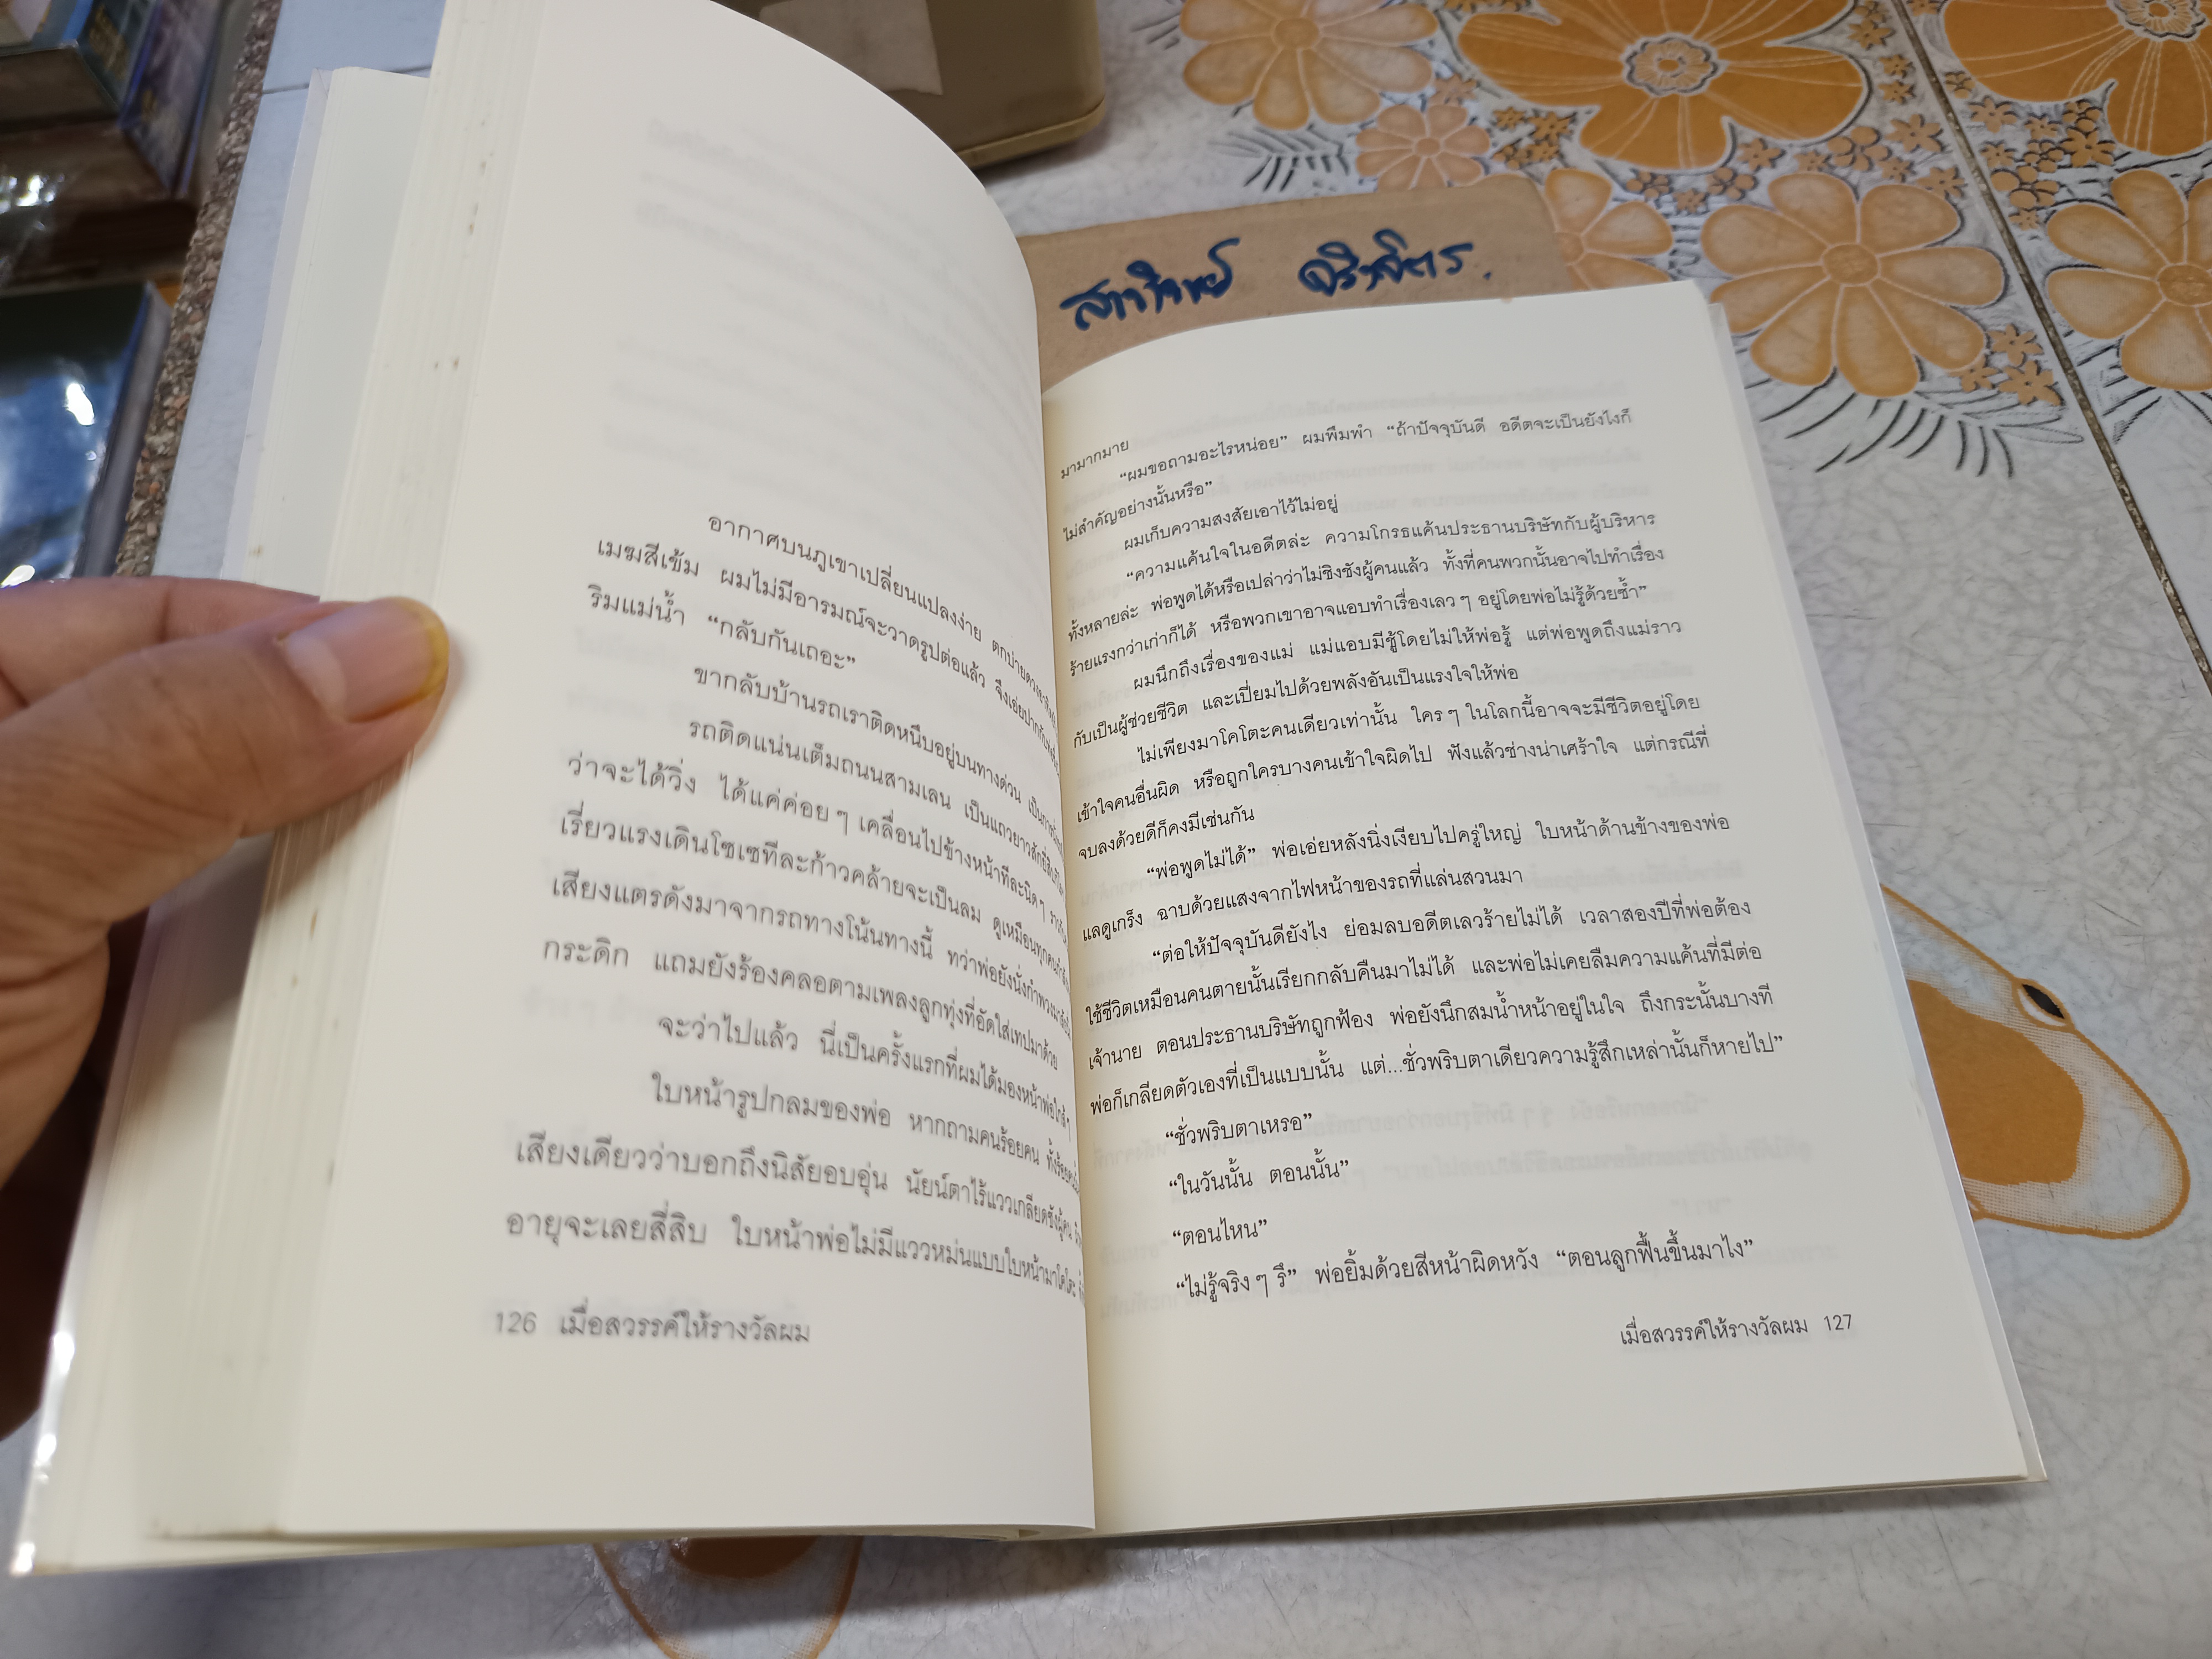 อากาศบนภูเขาเปลี่ยนแปลงง่าย ตกบ่ายดวงอาทิตย์
เมฆสีเข้ม ผมไม่มีอารมณ์จะวาดรูปต่อแล้ว จึงเอ่ยปากกับพ่อ
ริมแม่น้ำ “กลับกันเถอะ”
ขากลับบ้านรถเราติดหนึบอยู่บนทางด่วน เป็นการ
รถติดแน่นเต็มถนนสามเลน เป็นแถวยาวสัก
ว่าจะได้วิ่ง ได้แค่ค่อยๆ เคลื่อนไปข้างหน้าทีละนิดๆ
เรี่ยวแรงเดินโซเซทีละก้าวคล้ายจะเป็นลม ดูเหมือนทุกคน
เสียงแตรดังมาจากรถทางโน้นทางนี้ ทว่าพ่อยังนั่งกำพวงมาลัย
กระดิก แถมยังร้องคลอตามเพลงลูกทุ่งที่อัดใส่เทปมาด้วย
จะว่าไปแล้ว นี่เป็นครั้งแรกที่ผมได้มองหน้าพ่อใกล้ๆ
ใบหน้ารูปกลมของพ่อ หากถามคนร้อยคน ทั้งร้อยคน
เสียงเดียวว่าบอกถึงนิสัยอบอุ่น นัยน์ตาไร้แววเกลียดชังผู้คน
อายุจะเลยสี่สิบ ใบหน้าพ่อไม่มีแววหม่นแบบใบหน้ามาโคโตะ
126 เมื่อสวรรค์ให้รางวัลผม
สาวิทย์
มามากมาย
“ผมขอถามอะไรหน่อย” ผมพึมพำ “ถ้าปัจจุบันดี อดีตจะเป็นยังไงก็
ไม่สำคัญอย่างนั้นหรือ”
ผมเก็บความสงสัยเอาไว้ไม่อยู่
“ความแค้นใจในอดีตล่ะ ความโกรธแค้นประธานบริษัทกับผู้บริหาร
ทั้งหลายล่ะ พ่อพูดได้หรือเปล่าว่าไม่ชิงชังผู้คนแล้ว ทั้งที่คนพวกนั้นอาจไปทำเรื่อง
ร้ายแรงกว่าเก่าก็ได้ หรือพวกเขาอาจแอบทำเรื่องเลวๆ อยู่โดยพ่อไม่รู้ด้วยซ้ำ”
ผมนึกถึงเรื่องของแม่ แม่แอบมีชู้โดยไม่ให้พ่อรู้ แต่พ่อพูดถึงแม่ราว
กับเป็นผู้ช่วยชีวิต และเปี่ยมไปด้วยพลังอันเป็นแรงใจให้พ่อ
ไม่เพียงมาโคโตะคนเดียวเท่านั้น ใครๆ ในโลกนี้อาจจะมีชีวิตอยู่โดย
เข้าใจคนอื่นผิด หรือถูกใครบางคนเข้าใจผิดไป ฟังแล้วช่างน่าเศร้าใจ แต่กรณีที่
จบลงด้วยดีก็คงมีเช่นกัน
“พ่อพูดไม่ได้” พ่อเอ่ยหลังนิ่งเงียบไปครู่ใหญ่ ใบหน้าด้านข้างของพ่อ
แลดูเกร็ง ฉาบด้วยแสงจากไฟหน้าของรถที่แล่นสวนมา
“ต่อให้ปัจจุบันดียังไง ย่อมลบอดีตเลวร้ายไม่ได้ เวลาสองปีที่พ่อต้อง
ใช้ชีวิตเหมือนคนตายนั้นเรียกกลับคืนมาไม่ได้ และพ่อไม่เคยลืมความแค้นที่มีต่อ
เจ้านาย ตอนประธานบริษัทถูกฟ้อง พ่อยังนึกสมน้ำหน้าอยู่ในใจ ถึงกระนั้นบางที
พ่อก็เกลียดตัวเองที่เป็นแบบนั้น แต่...ชั่วพริบตาเดียวความรู้สึกเหล่านั้นก็หายไป”
“ชั่วพริบตาเหรอ”
“ในวันนั้น ตอนนั้น”
“ตอนไหน”
“ไม่รู้จริงๆ รึ” พ่อยิ้มด้วยสีหน้าผิดหวัง “ตอนลูกฟื้นขึ้นมาไง”
เมื่อสวรรค์ให้รางวัลผม 127